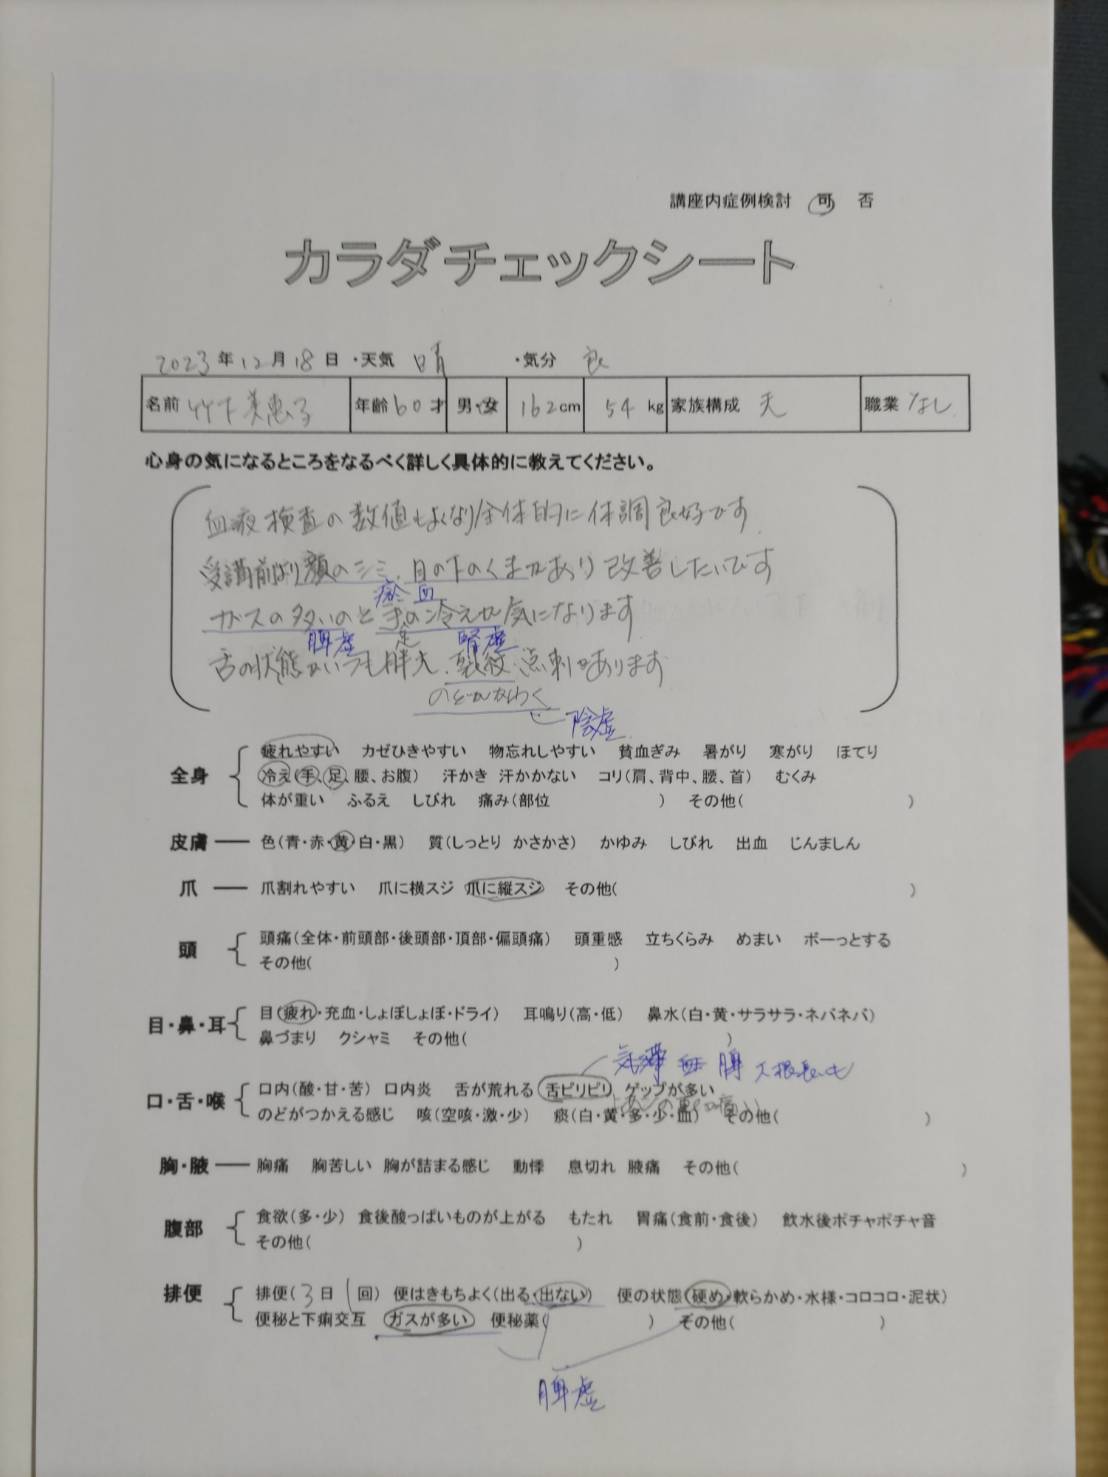 講座内症例検討 可 否
カラダチェックシート
2023年12月18日 ・天気 晴 ・気分 良
名前 竹下美恵子 年齢60才 男・女 162cm 54kg 家族構成 夫 職業 なし
心身の気になるところをなるべく詳しく具体的に教えてください。
血液検査の数値もよくなり全体的に体調良好です
受講前より顔のシミ、目の下のくまがあり改善したいです
瘀血
ガスの多いのと手の冷えが気になります
脾虚 足 腎虚
舌の状態がいつも胖大、裂紋、点刺があります
のどがかわく
陰虚
全身 疲れやすい カゼひきやすい 物忘れしやすい 貧血ぎみ 暑がり 寒がり ほてり
冷え(手、足、腰、お腹) 汗かき 汗かかない コリ(肩、背中、腰、首) むくみ
体が重い ふるえ しびれ 痛み(部位 ) その他( )
皮膚 色(青・赤・黄・白・黒) 質(しっとり かさかさ) かゆみ しびれ 出血 じんましん
爪 爪割れやすい 爪に横スジ 爪に縦スジ その他( )
頭 頭痛(全体・前頭部・後頭部・頂部・偏頭痛) 頭重感 立ちくらみ めまい ボーっとする
その他( )
目・鼻・耳 目(疲れ・充血・しょぼしょぼ・ドライ) 耳鳴り(高・低) 鼻水(白・黄・サラサラ・ネバネバ)
鼻づまり クシャミ その他( )
気滞 血 脾
口・舌・喉 口内(酸・甘・苦) 口内炎 舌が荒れる 舌ピリピリ ゲップが多い
のどがつかえる感じ 咳(空咳・激・少) 痰(白・黄・多・少・血) その他( )
胸・腋 胸痛 胸苦しい 胸が詰まる感じ 動悸 息切れ 腋痛 その他( )
腹部 食欲(多・少) 食後酸っぱいものが上がる もたれ 胃痛(食前・食後) 飲水後ポチャポチャ音
その他( )
排便 排便(3日 1回) 便はきもちよく(出る・出ない) 便の状態(硬め・軟らかめ・水様・コロコロ・泥状)
便秘と下痢交互 ガスが多い 便秘薬( ) その他( )
脾虚